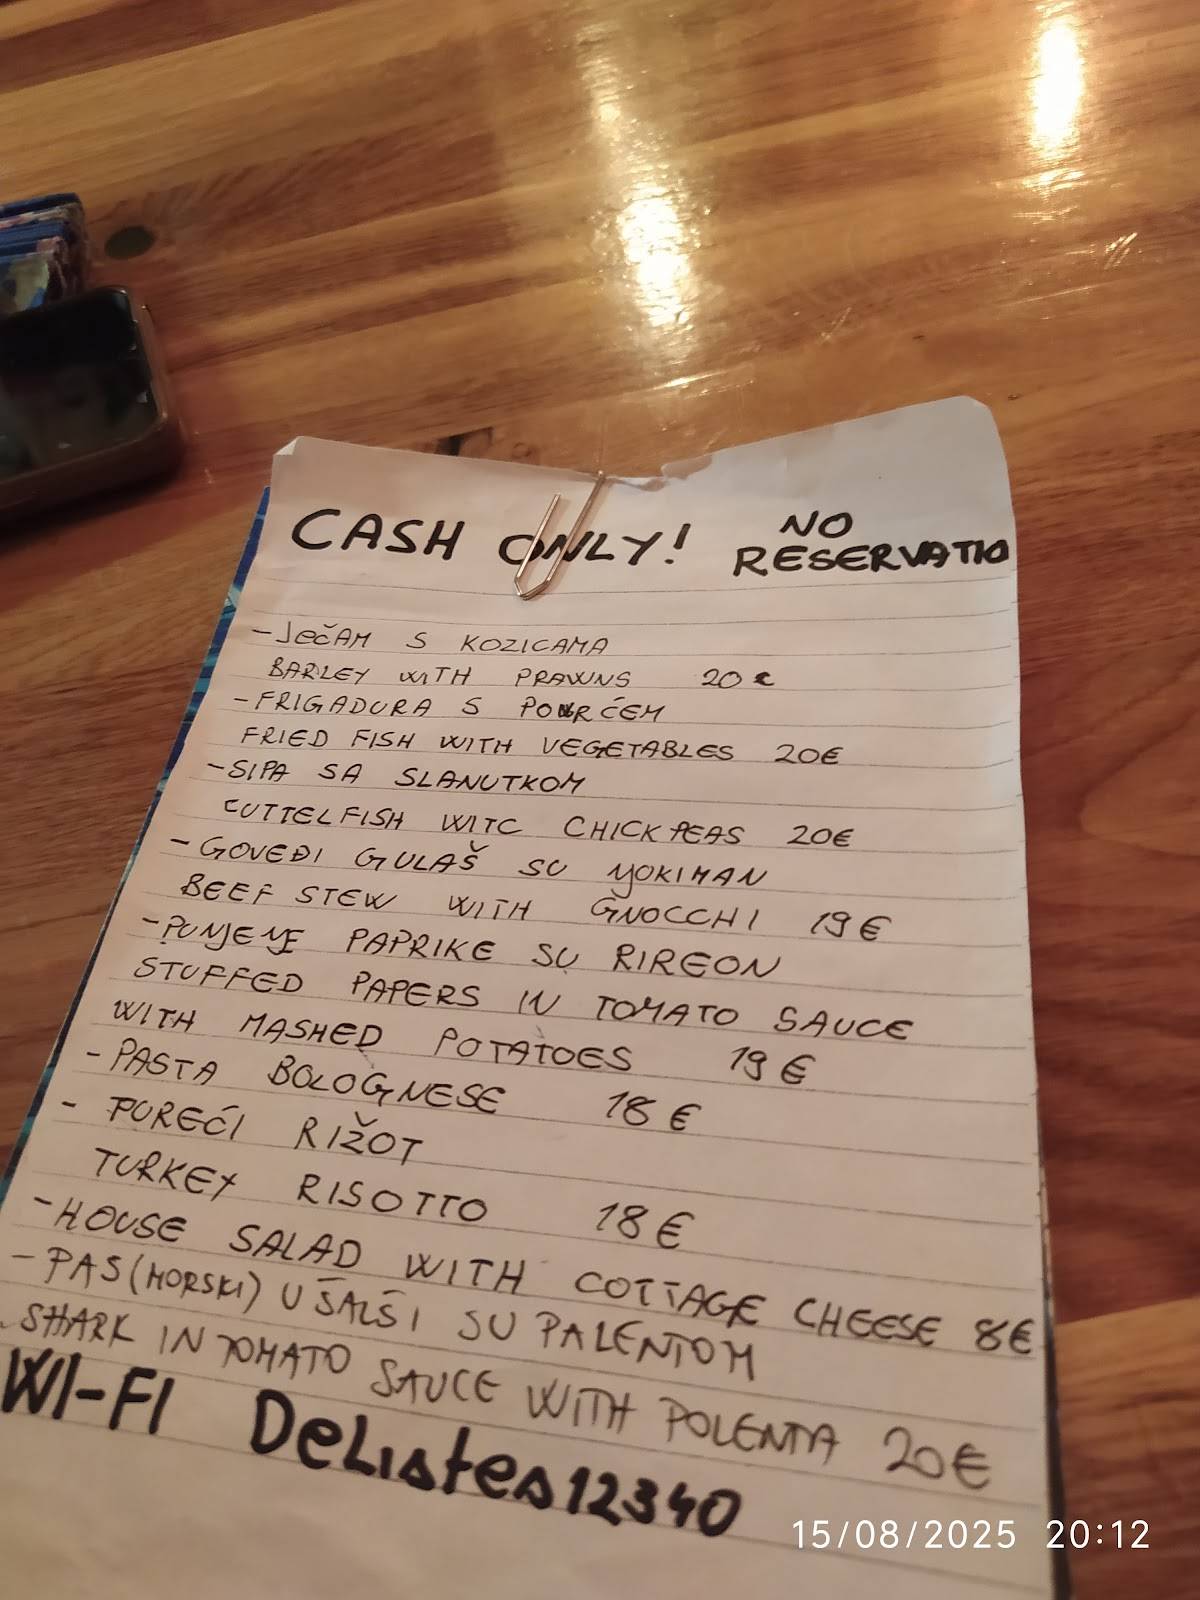 CASH ONLY! NO RESERVATIO
- JEČAM S KOZICAMA
BARLEY WITH PRAWNS 20€
- FRIGADURA S POVRĆEM
FRIED FISH WITH VEGETABLES 20€
- SIPA SA SLANUTKOM
CUTTELFISH WITC CHICKPEAS 20€
- GOVEĐI GULAŠ SU NJOKIMAN
BEEF STEW WITH GNOCCHI 19€
- PUNJENJE PAPRIKE SU RIREON
STUFFED PAPERS IN TOMATO SAUCE
WITH MASHED POTATOES 19€
- PASTA BOLOGNESE 18€
- PUREĆI RIŽOT
TURKEY RISOTTO 18€
- HOUSE SALAD WITH COTTAGE CHEESE 8€
- PAS (MORSKI) U ŠALŠI SU PALENTOM
SHARK IN TOMATO SAUCE WITH POLENTA 20€
WI-FI DeListes12340
15/08/2025 20:12